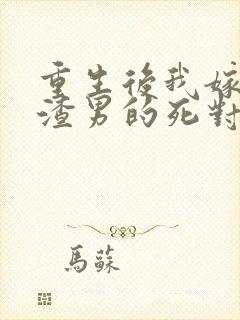 重生後我嫁
渣男的死對
馬蘇